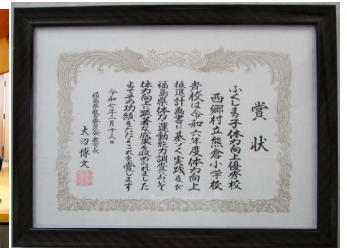 賞状
ふくしまっ子体力向上優秀校
西郷村立熊倉小学校
貴校は令和六年度体力向上
推進計画書に基づく実践及び
福島県体力・運動能力調査において
体力向上に顕著な成果を収められました
よってその功績をたたえこれを賞します
令和七年二月十三日
福島県教育委員会教育長
大沼博文